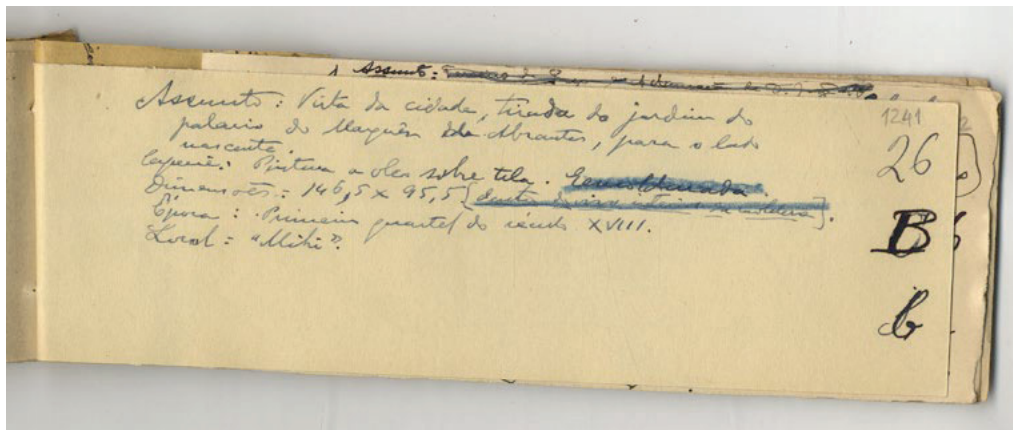 Assunto:
Assunto: Vista da cidade, tirada do jardim do
palacio do Marquês de Abrantes, para o lado
nascente.
Especie: Pintura a oleo sobre tela. Emoldurada.
Dimensões: 146,5 x 95,5 [
Época: Primeiro quartel do século XVIII.
Local: "Mihi".
1241
26
B
b